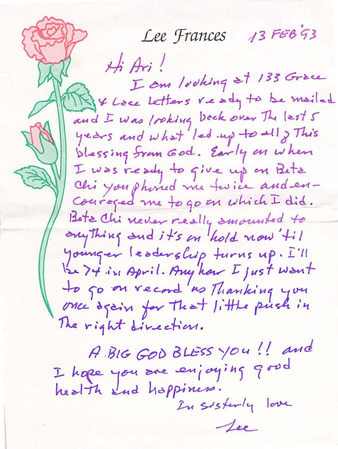 Lee Frances 13 FEB '93
Hi Ari!
I am looking at 133 Grace
& Lace Letters ready to be mailed
and I was looking back over The last 5
years and what led up to all This
blessing from God. Early on when
I was ready to give up on Beta
Chi you phoned me twice and en-
couraged me to go on which I did.
Beta Chi never really amounted to
anything and it's on hold now 'til
younger leadership turns up. I'll
be 74 in April. Anyhow I just want
to go on record as Thanking you
once again for That little push in
The right direction.
A BIG GOD BLESS YOU!! and
I hope you are enjoying good
health and happiness.
In sisterly love
Lee